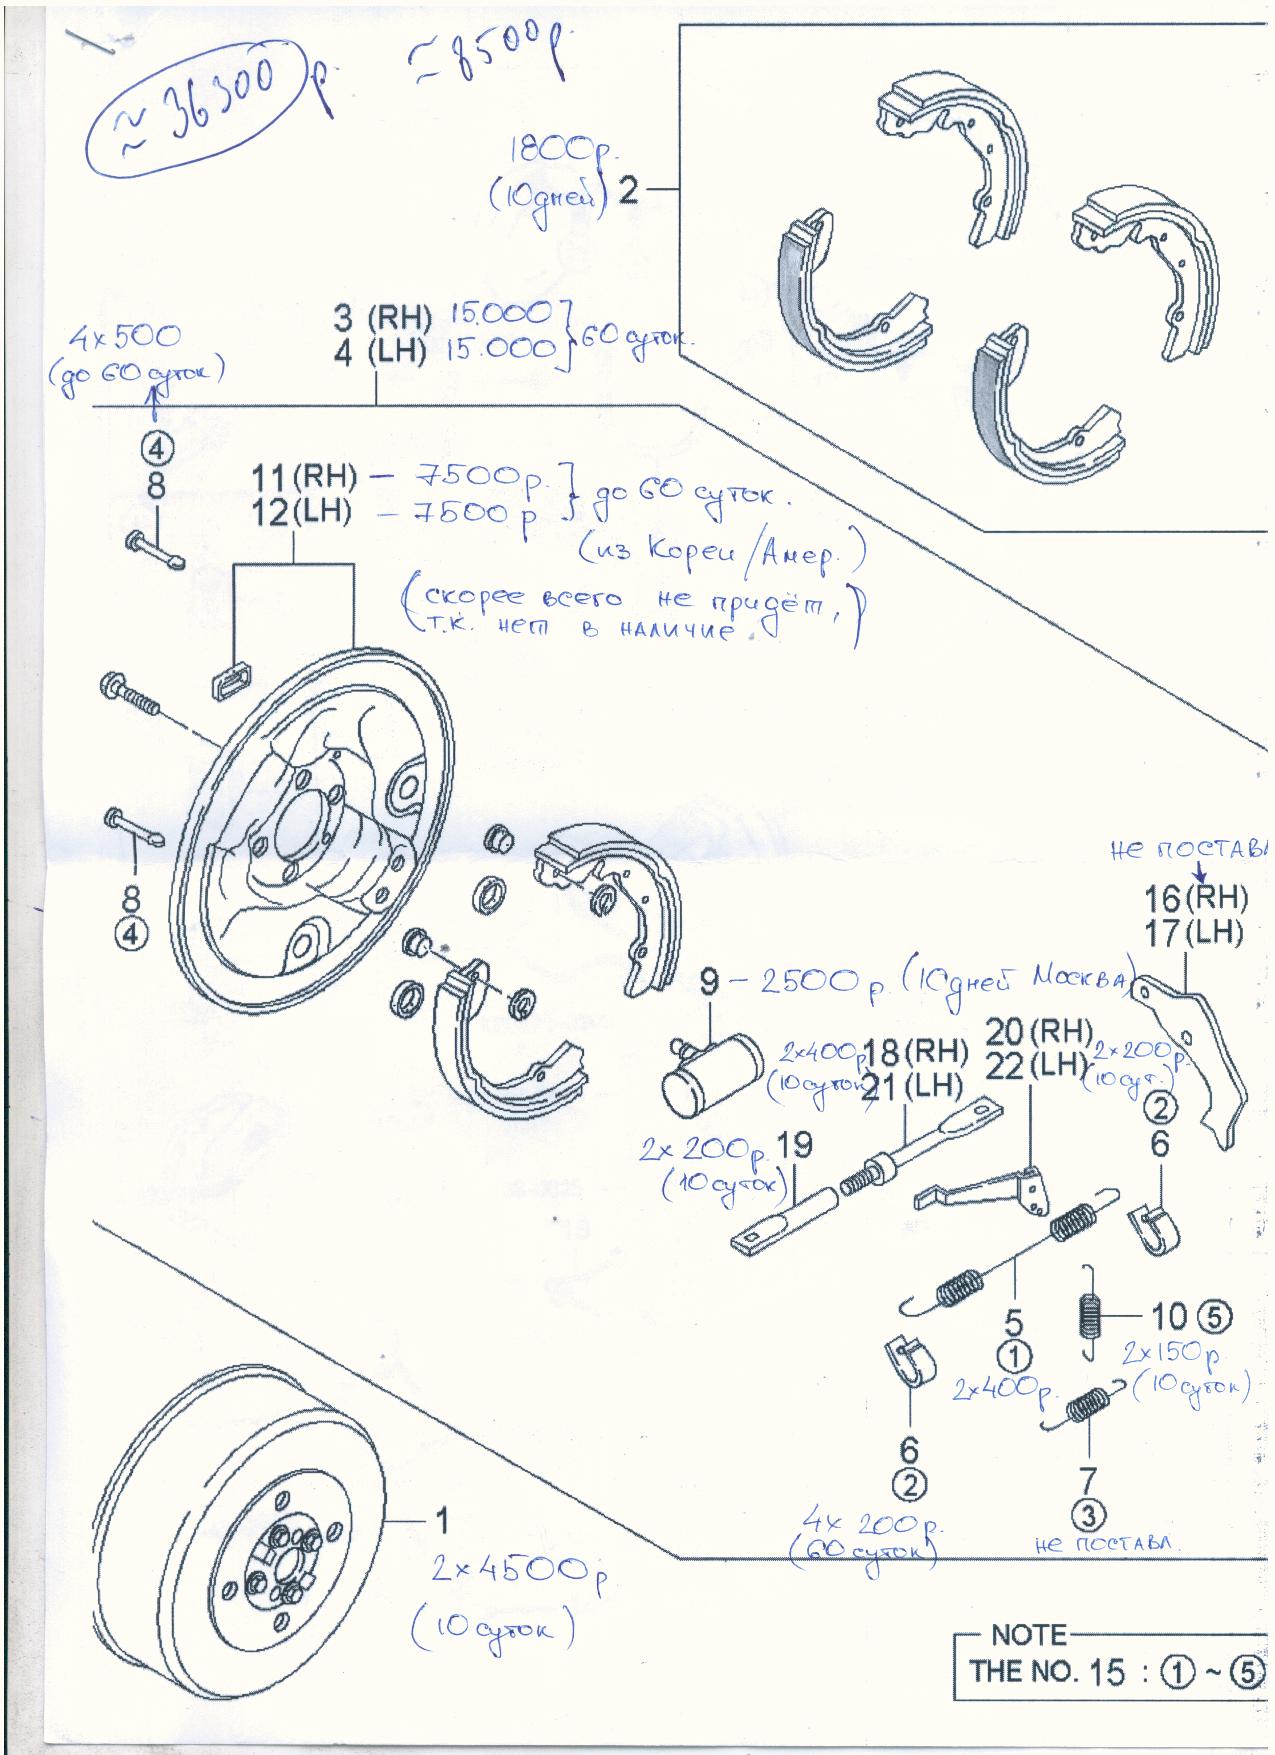 ≈36300р.
≈8500р.
1800р.
(10дней) 2
3 (RH) 15.000
4 (LH) 15.000 } 60 суток.
4x500
(до 60 суток)
④
8
11(RH) – 7500р.
12(LH) – 7500р } до 60 суток.
(из Кореи/Амер.)
(скорее всего не придёт,
т.к. нет в наличие.)
8
④
не постав
16(RH)
17(LH)
9 – 2500р. (10дней Москва)
2x400р 18(RH)
(10суток) 21(LH)
20(RH)
22(LH)
2x200р.
(10сут.)
②
6
2x200р. 19
(10суток)
5
①
2x400р.
10 ⑤
2x150р.
(10суток)
6
②
4x 200р.
(60суток)
7
③
не поставл.
1
2x4500р
(10суток)
NOTE
THE NO. 15 : ① ~ ⑤